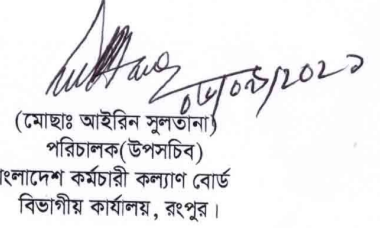 (মোছাঃ আইরিন সুলতানা)
পরিচালক(উপসচিব)
বাংলাদেশ কর্মচারী কল্যাণ বোর্ড
বিভাগীয় কার্যালয়, রংপুর।